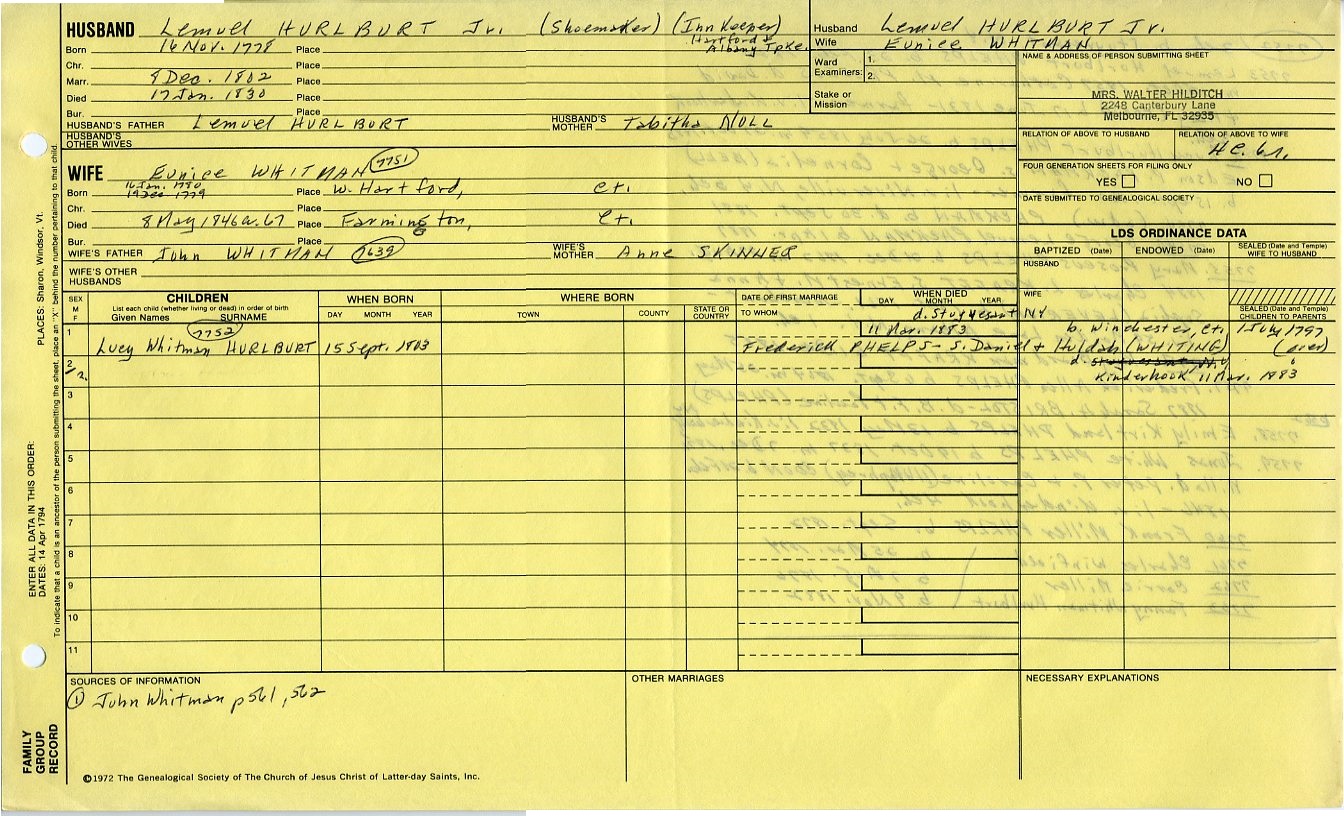 HUSBAND Lemuel HURLBURT Jr. (Shoemaker) (Inn Keeper)
Hartford &
Albany Tpke.
Born 16 Nov. 1778 Place
Chr. Place
Marr. 8 Dec. 1802 Place
Died 17 Jan. 1830 Place
Bur. Place
HUSBAND'S FATHER Lemuel HURLBURT HUSBAND'S MOTHER Tabitha NOLL
HUSBAND'S OTHER WIVES
Husband Lemuel HURLBURT Jr.
Wife Eunice WHITMAN
Ward Examiners: 1.
2.
Stake or Mission
NAME & ADDRESS OF PERSON SUBMITTING SHEET
MRS. WALTER HILDITCH
2248 Canterbury Lane
Melbourne, FL 32935
RELATION OF ABOVE TO HUSBAND RELATION OF ABOVE TO WIFE
FOUR GENERATION SHEETS FOR FILING ONLY
YES NO
DATE SUBMITTED TO GENEALOGICAL SOCIETY
7751
WIFE Eunice WHITMAN
16 Jan. 1780
Born 19 Dec 1779 Place W. Hartford, Ct.
Chr. Place
Died 8 May 1846 a. 67 Place Farmington, Ct.
Bur. Place
WIFE'S FATHER John WHITMAN 7639 WIFE'S MOTHER Anne SKINNER
WIFE'S OTHER HUSBANDS
LDS ORDINANCE DATA
BAPTIZED (Date) ENDOWED (Date) SEALED (Date and Temple) WIFE TO HUSBAND
HUSBAND
WIFE
SEALED (Date and Temple) CHILDREN TO PARENTS
SEX M F
CHILDREN
List each child (whether living or dead) in order of birth
Given Names SURNAME
WHEN BORN
DAY MONTH YEAR
WHERE BORN
TOWN COUNTY STATE OR COUNTRY
DATE OF FIRST MARRIAGE
TO WHOM
WHEN DIED
DAY MONTH YEAR
d. Stuyvesant NY
1 7752 11 Mar. 1883 b. Winchester, Ct. 1 July 1797
Lucy Whitman HURLBURT 15 Sept. 1803 Frederick PHELPS - s. Daniel + Huldah (WHITING) (over)
2 d. Stuyvesant, N.Y.
Kinderhook 11 Mar. 1883
3
4
5
6
7
8
9
10
11
SOURCES OF INFORMATION
① John Whitman p561, 562
OTHER MARRIAGES
NECESSARY EXPLANATIONS
©1972 The Genealogical Society of The Church of Jesus Christ of Latter-day Saints, Inc.
FAMILY GROUP RECORD
ENTER ALL DATA IN THIS ORDER:
DATES: 14 Apr 1794
PLACES: Sharon, Windsor, Vt.
To indicate that a child is an ancestor of the person submitting the sheet, place an "X" behind the number pertaining to that child.